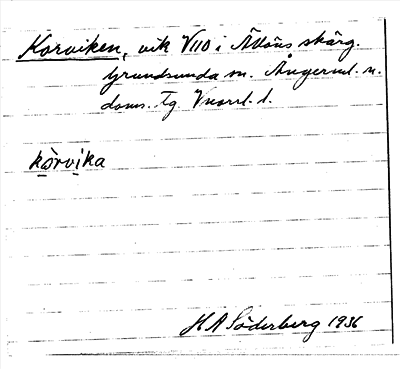 Korviken, vik V110 i Ällöns skärg.
Grundsunda sn. Ångerml. n.
doms. tg Vnorrl. l.
kòrvika
H A Söderberg 1936